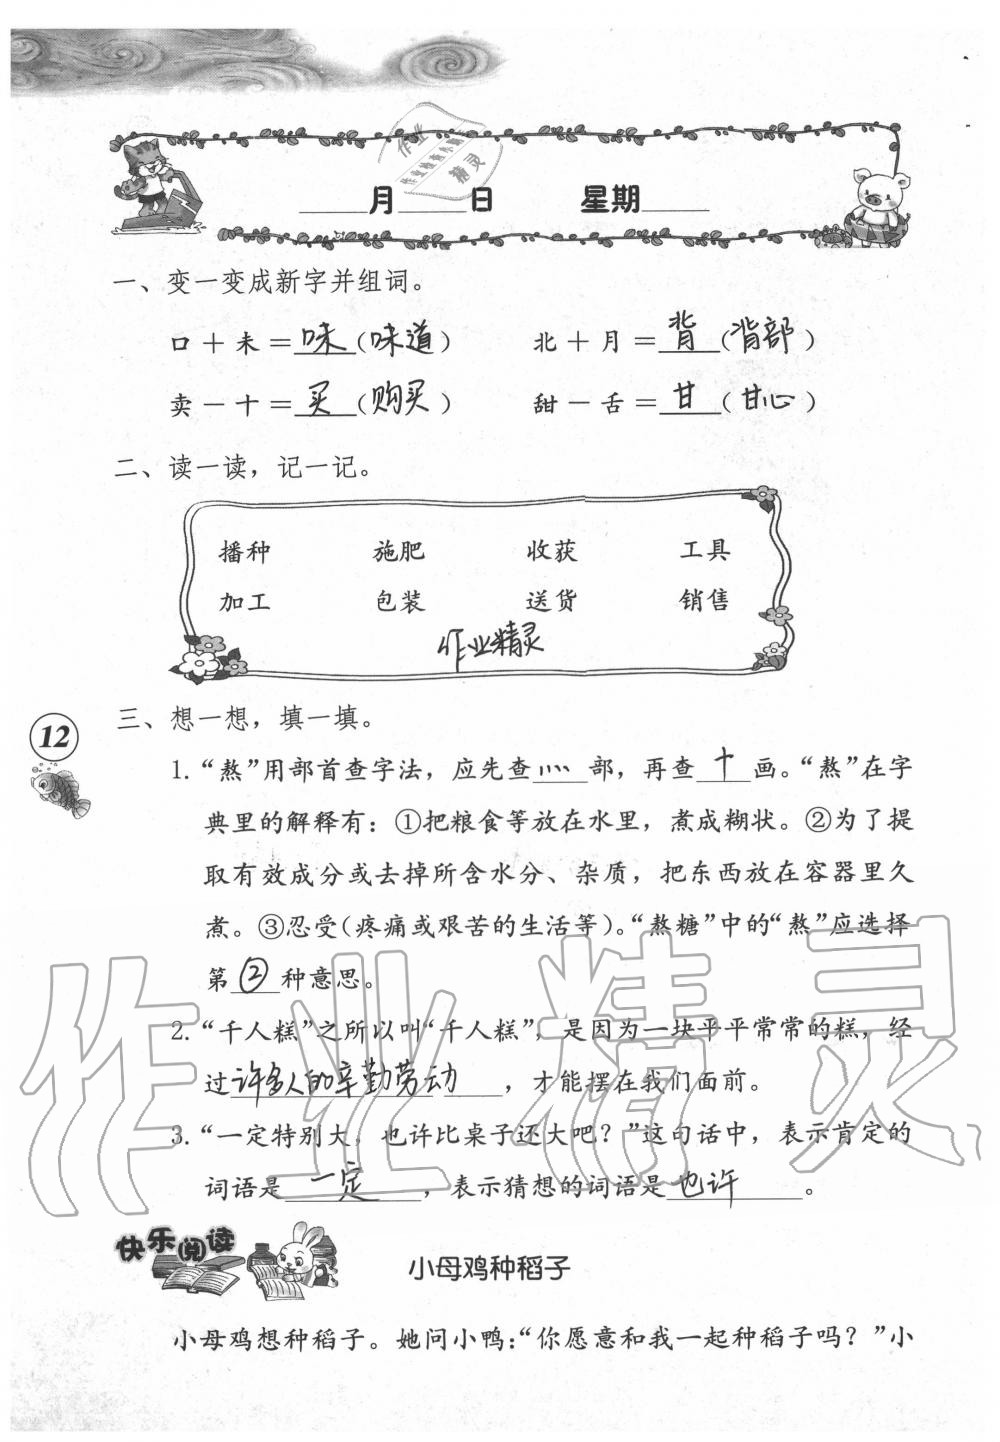 作业
作业检查小助
精灵
____月____日 星期____
一、变一变成新字并组词。
口＋未＝味(味道) 北＋月＝背(背部)
卖－十＝买(购买) 甜－舌＝甘(甘心)
二、读一读，记一记。
播种 施肥 收获 工具
加工 包装 送货 销售
作业精灵
三、想一想，填一填。
12
1.“熬”用部首查字法，应先查灬部，再查十画。“熬”在字
典里的解释有：①把粮食等放在水里，煮成糊状。②为了提
取有效成分或去掉所含水分、杂质，把东西放在容器里久
煮。③忍受(疼痛或艰苦的生活等)。“熬糖”中的“熬”应选择
第②种意思。
2.“千人糕”之所以叫“千人糕”，是因为一块平平常常的糕，经
过许多人的辛勤劳动，才能摆在我们面前。
3.“一定特别大，也许比桌子还大吧？”这句话中，表示肯定的
词语是一定，表示猜想的词语是也许。
作业精灵
快乐阅读
小母鸡种稻子
小母鸡想种稻子。她问小鸭：“你愿意和我一起种稻子吗？”小